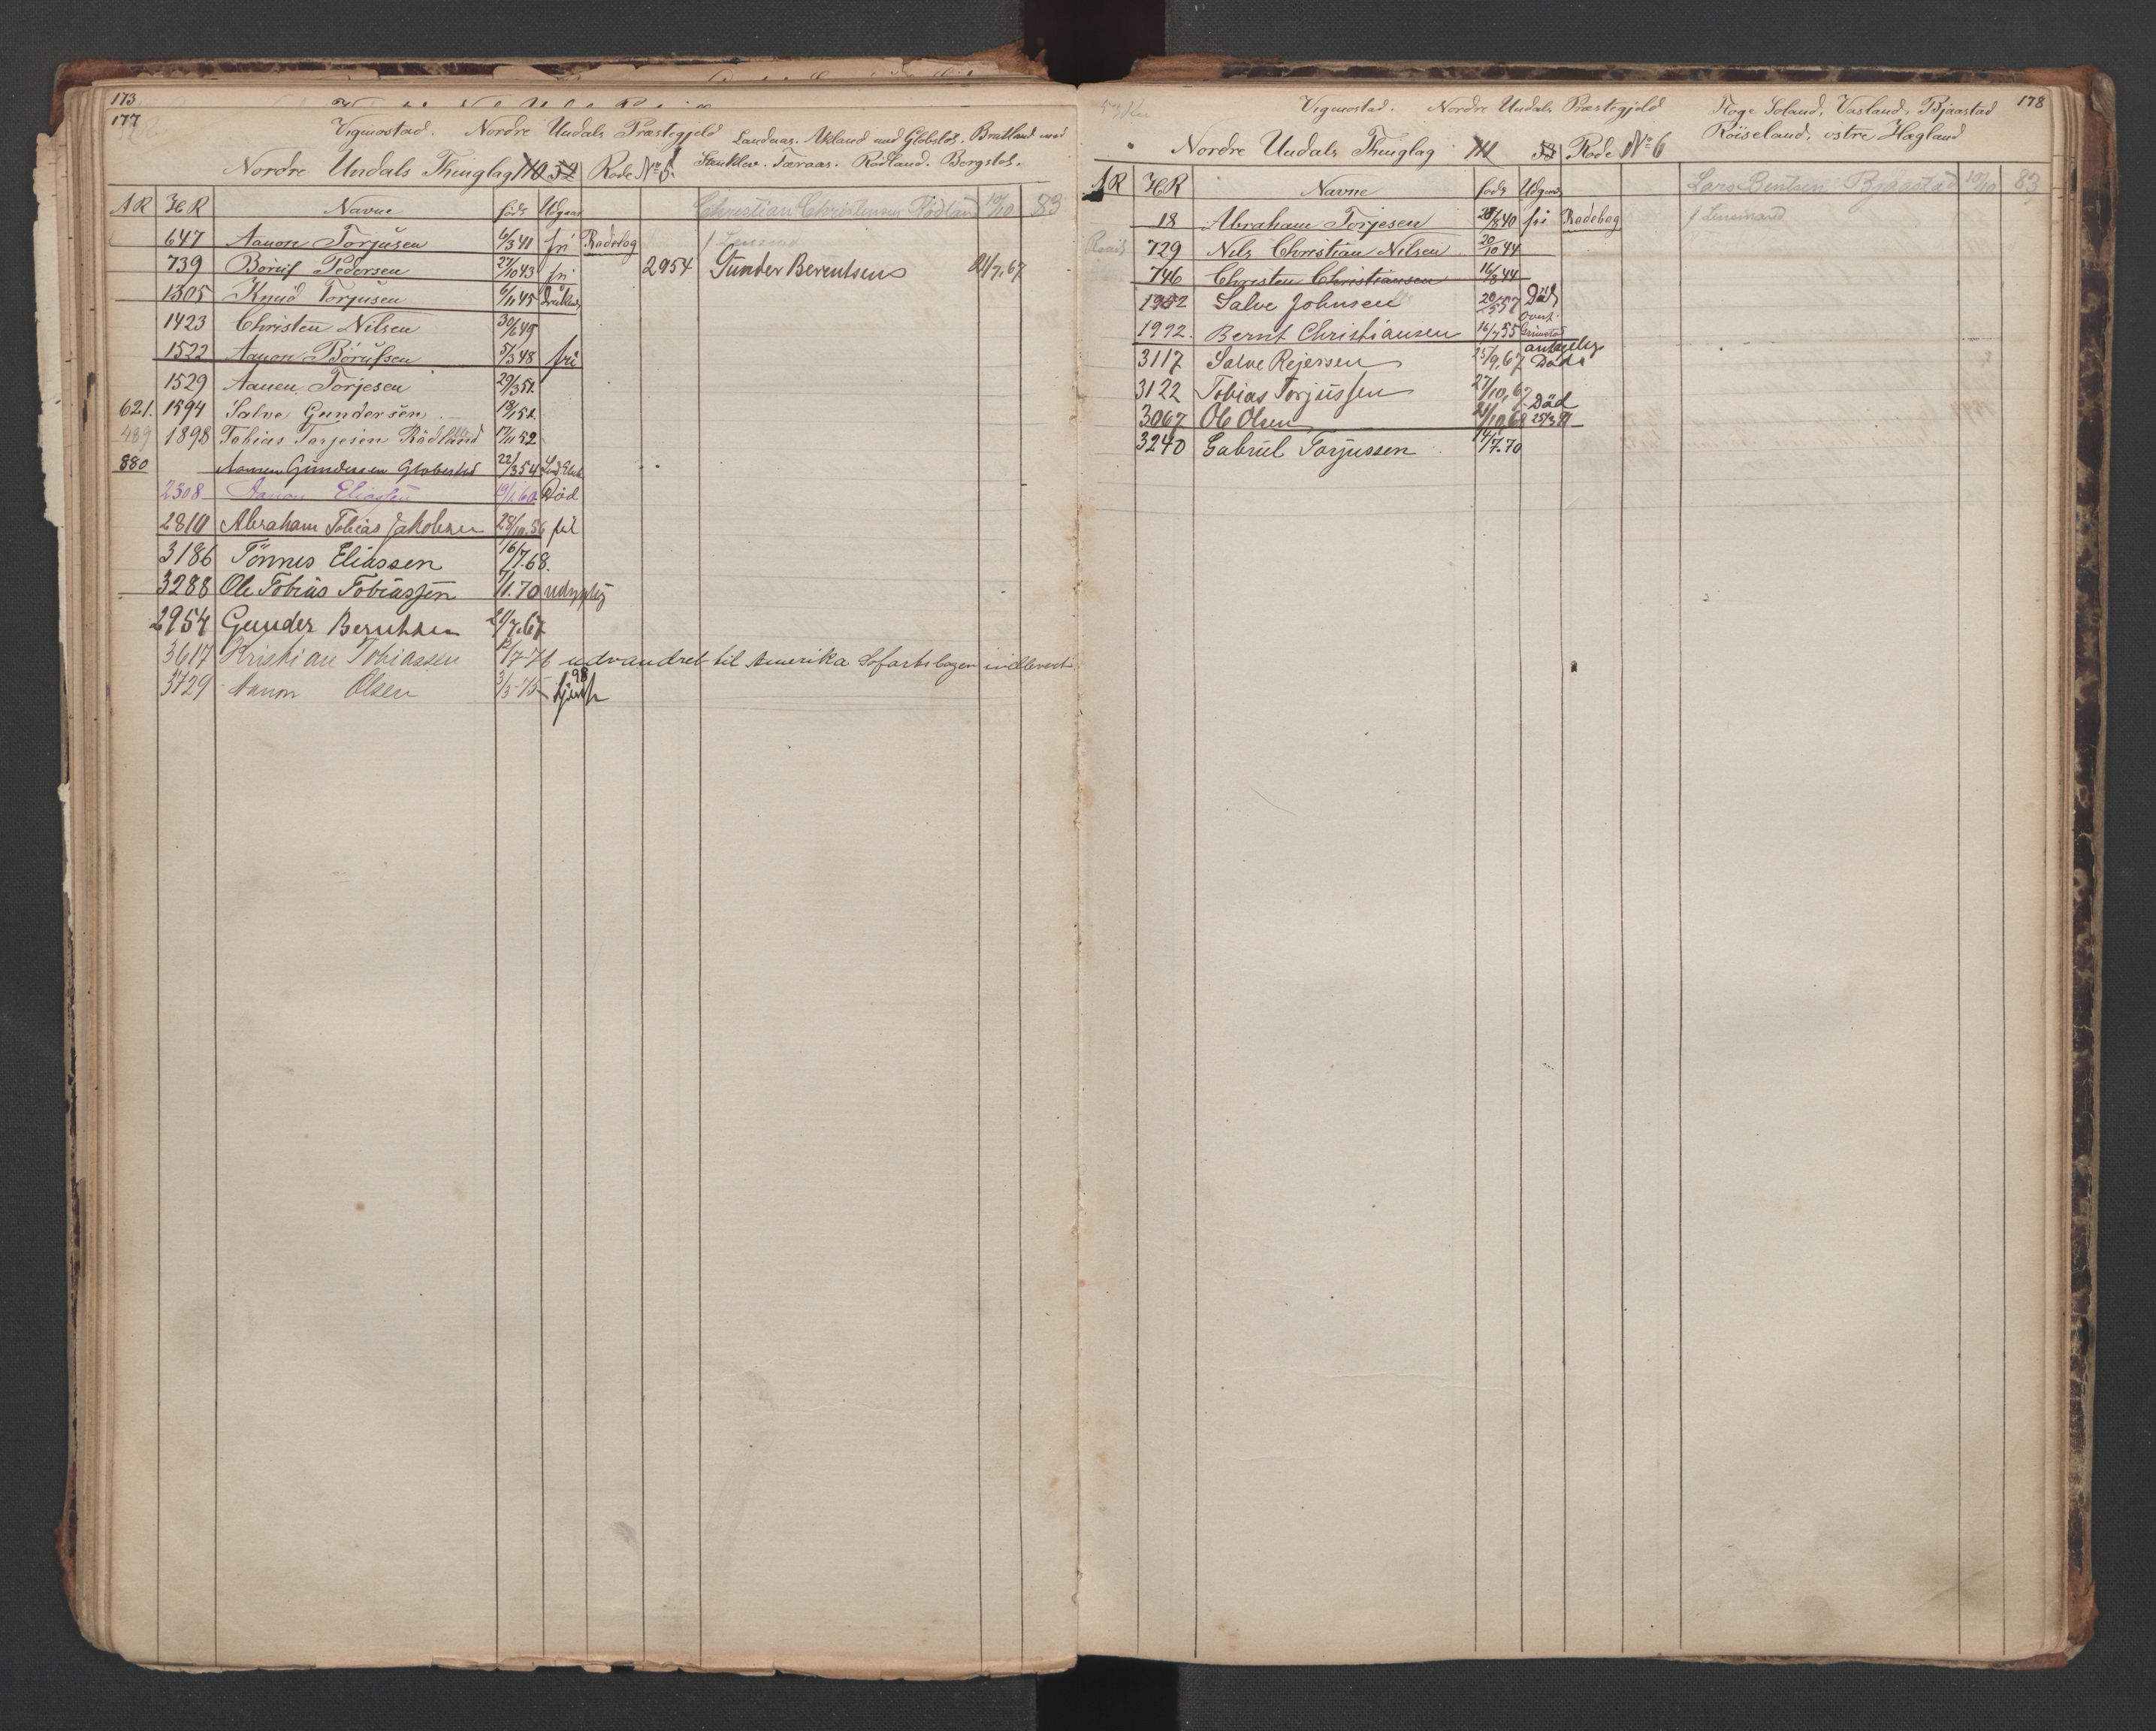 173
177
Vigmostad. Nordre Undals Præstegjeld Landaas. Akland med Globstol. Bratland med
Nordre Undals Thinglag 110 52 Rode No 5. Taraas. Rödland. Bergstöl.
AR HR Navne föds Udgaar Christian Christensen Rödland 10/10 83
647 Aanon Torjusen 6/3 41 fri Rodelag
739 Börüf Pedersen 27/10 43 fri 2954 Gunder Berentsen 21/7.67
1305 Knud Torjusen 6/11 45
1423 Christen Nilsen 30/6 49
1522 Aanon Börufsen 5/3 48 fri
1529 Aanen Torjesen 29/3 51
621. 1594 Salve Gundersen
489 1898 Tobias Torjesen Rödland 17/11 52
880 Aanen Gundersen Globestad 22/3 54
2308 Aanon Eliassen 19/1 60 Död
2810 Abraham Tobias Jakobsen 28/10.56 fri
3186 Tönnes Eliassen 16/7.68.
3288 Ole Tobias Tobiassen 7/1.70 udygtig
2954 Gunder Berntsen 21/7.67
3617 Kristian Tobiassen 12/7-76 udvandret til Amerika Söfartsbogen indleveret
3729 Aanon Olsen 3/3-75 98
178
Vigmostad. Nordre Undals Præstegjeld Floge Soland, Vasland, Bjaastad
Nordre Undals Thinglag 111 53 Rode No 6 Röiseland, östre Hagland
AR HR Navne föds Udgaar Lars Bentsen Bjaastad 10/10 83
18 Abraham Torjesen 28/8 40 fri Rodelag
729 Nils Christian Nilsen 20/10 44
746 Christen Christiansen 16/8 44
1982 Salve Johnsen 20/5 57 Död
1992. Bernt Christiansen 16/7 55 Overf. Grimstad
3117 Salve Rejersen 25/9.67 Död
3122 Tobias Torjussen 27/10.67
3067 Ole Olsen 21/10.68 Död
3240 Gabriel Torjussen 14/7.70